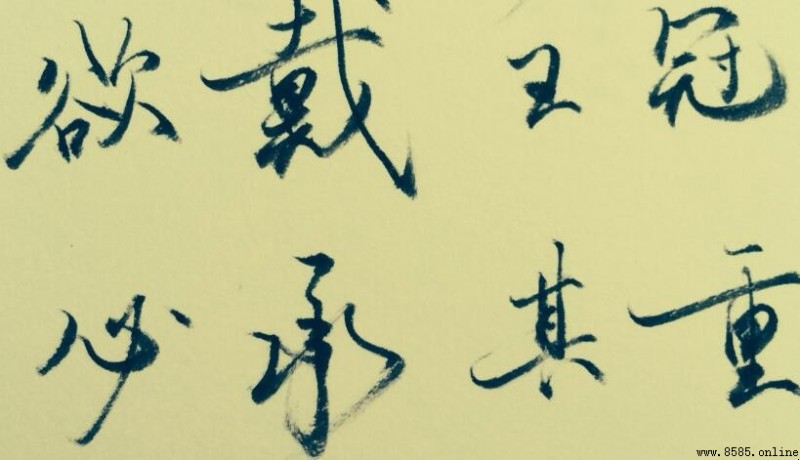 欲戴王冠
必承其重
www.8585.online